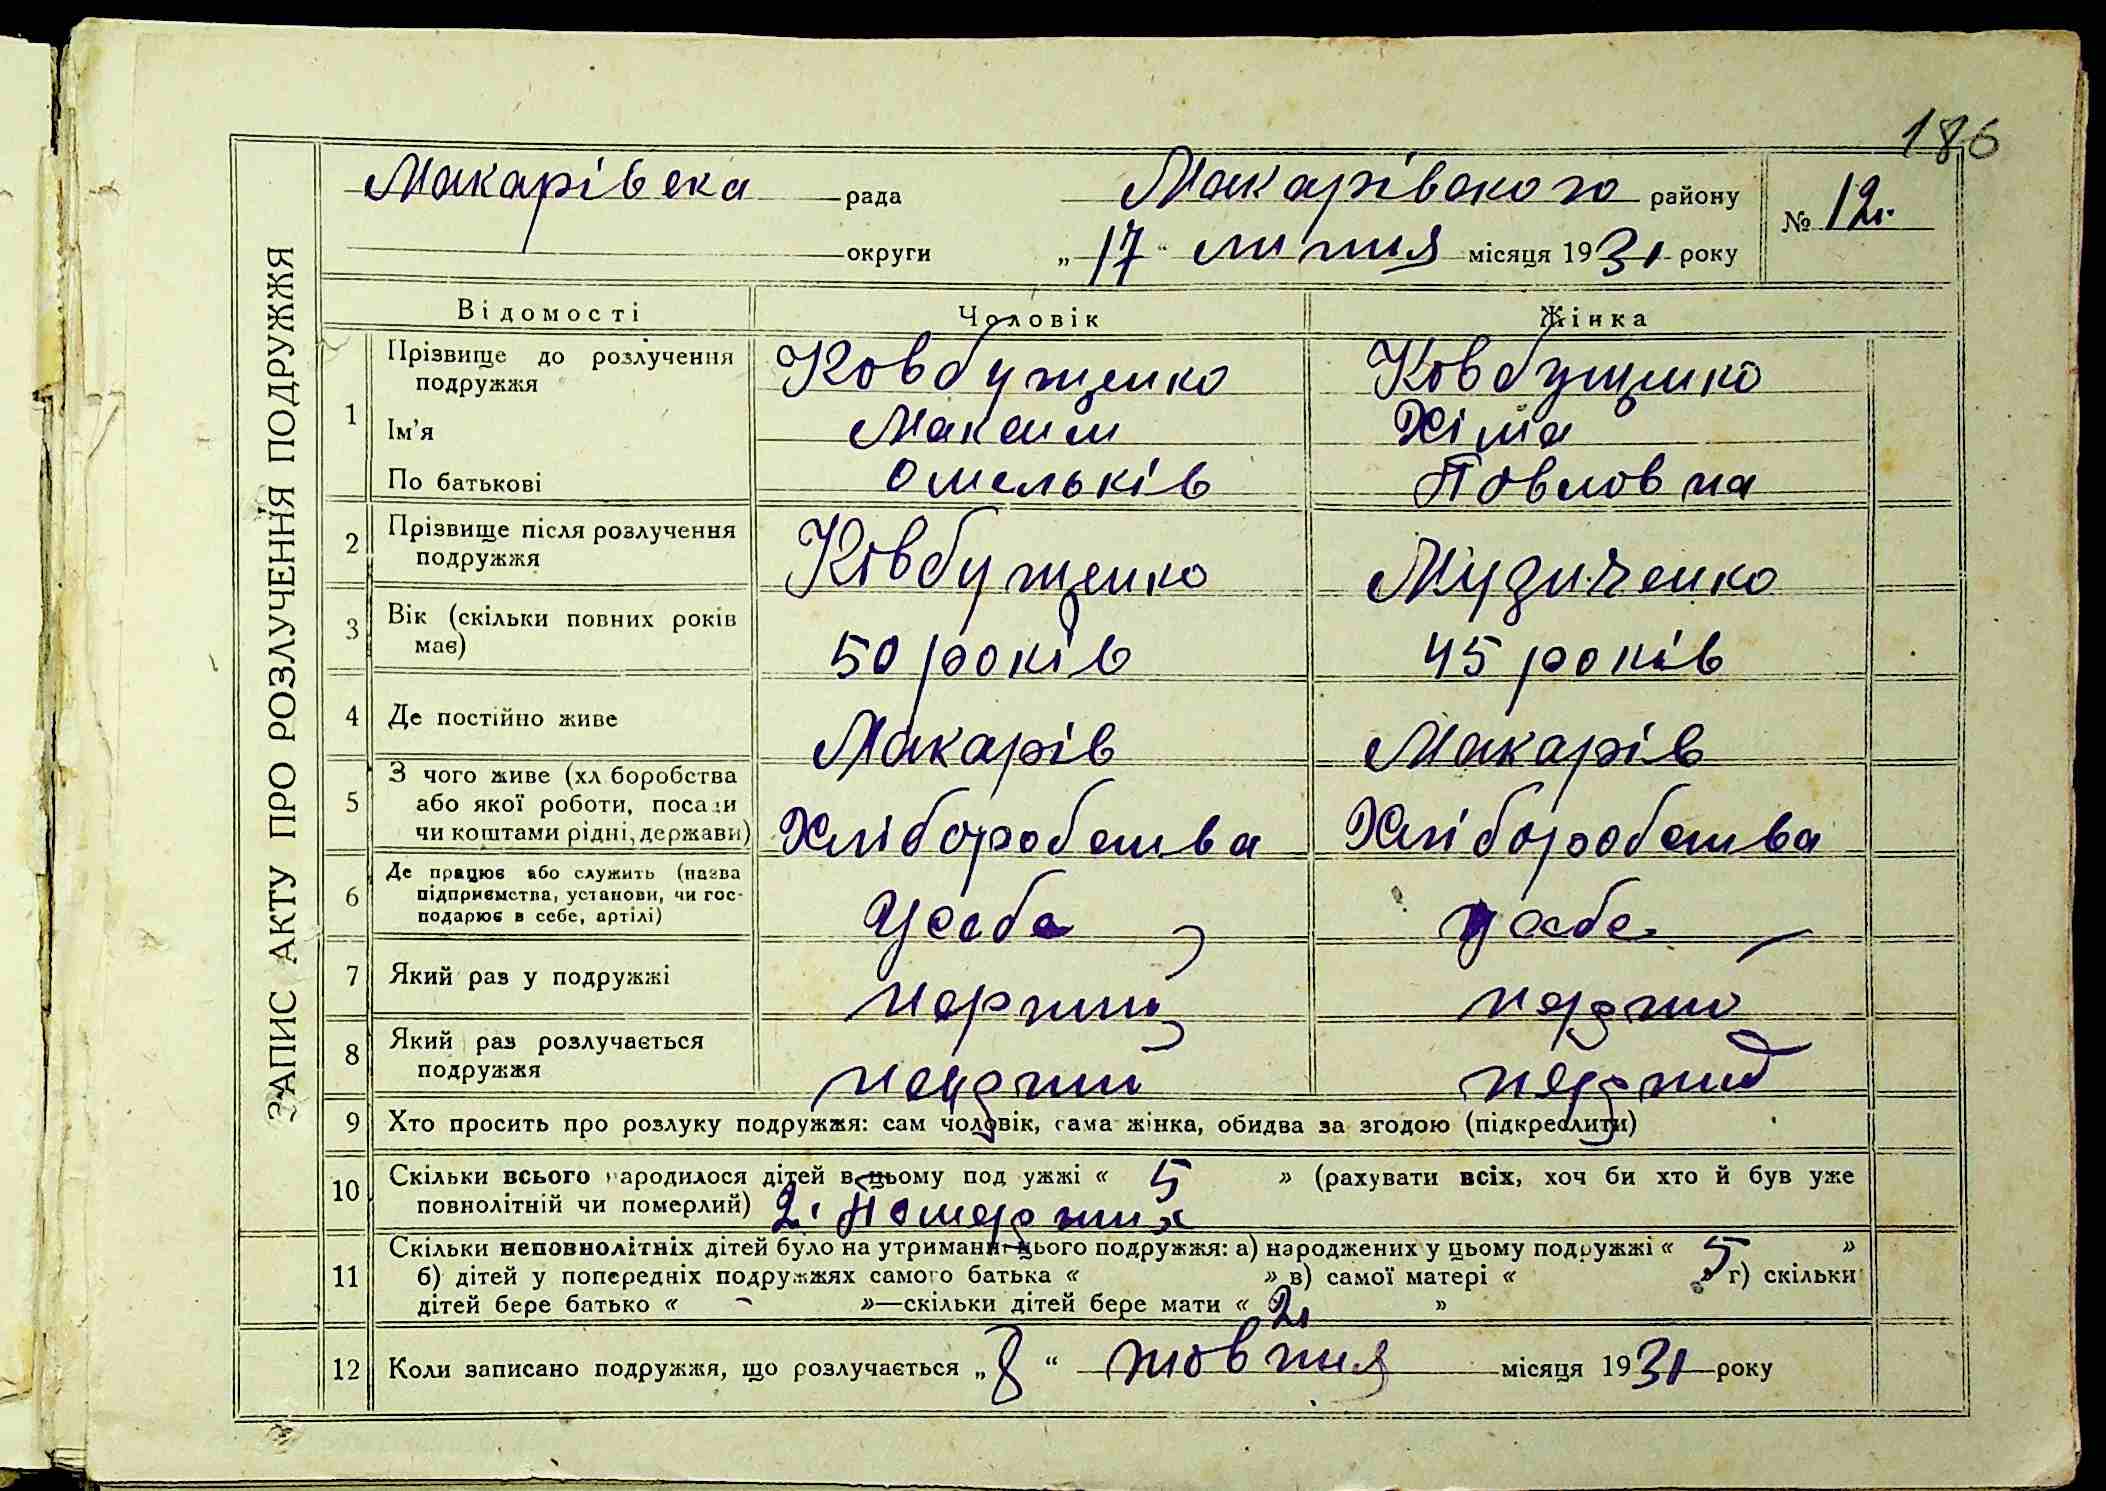 186
Макарівска рада Макарівского району № 12.
округи „17“ липня місяця 1931 року
ЗАПИС АКТУ ПРО РОЗЛУЧЕННЯ ПОДРУЖЖЯ
Відомості Чоловік Жінка
1 Прізвище до розлучення подружжя Ковбущенко Ковбущенко
Ім’я Максим Хіма
По батькові Омельків Павловна
2 Прізвище після розлучення подружжя Ковбущенко Музиченко
3 Вік (скільки повних років має) 50 років 45 років
4 Де постійно живе Макарів Макарів
5 З чого живе (хл боробства
або якої роботи, посади
чи коштами рідні, держави) Хліборобства Хліборобства
6 Де працює або служить (назва
підприємства, установи, чи гос-
подарює в себе, артілі) Усебе усебе
7 Який раз у подружжі перший перший
8 Який раз розлучається
подружжя перший перший
9 Хто просить про розлуку подружжя: сам чоловік, сама жінка, обидва за згодою (підкреслити)
10 Скільки всього народилося дітей в цьому под ужжі « 5 » (рахувати всіх, хоч би хто й був уже
повнолітній чи померлий) 2. Померших
11 Скільки неповнолітніх дітей було на утриманні цього подружжя: а) народжених у цьому подружжі « 5 »
б) дітей у попередніх подружжях самого батька « » в) самої матері « » г) скільки
дітей бере батько « - »—скільки дітей бере мати « 2 »
12 Коли записано подружжя, що розлучається „8“ жовтня місяця 1931 року